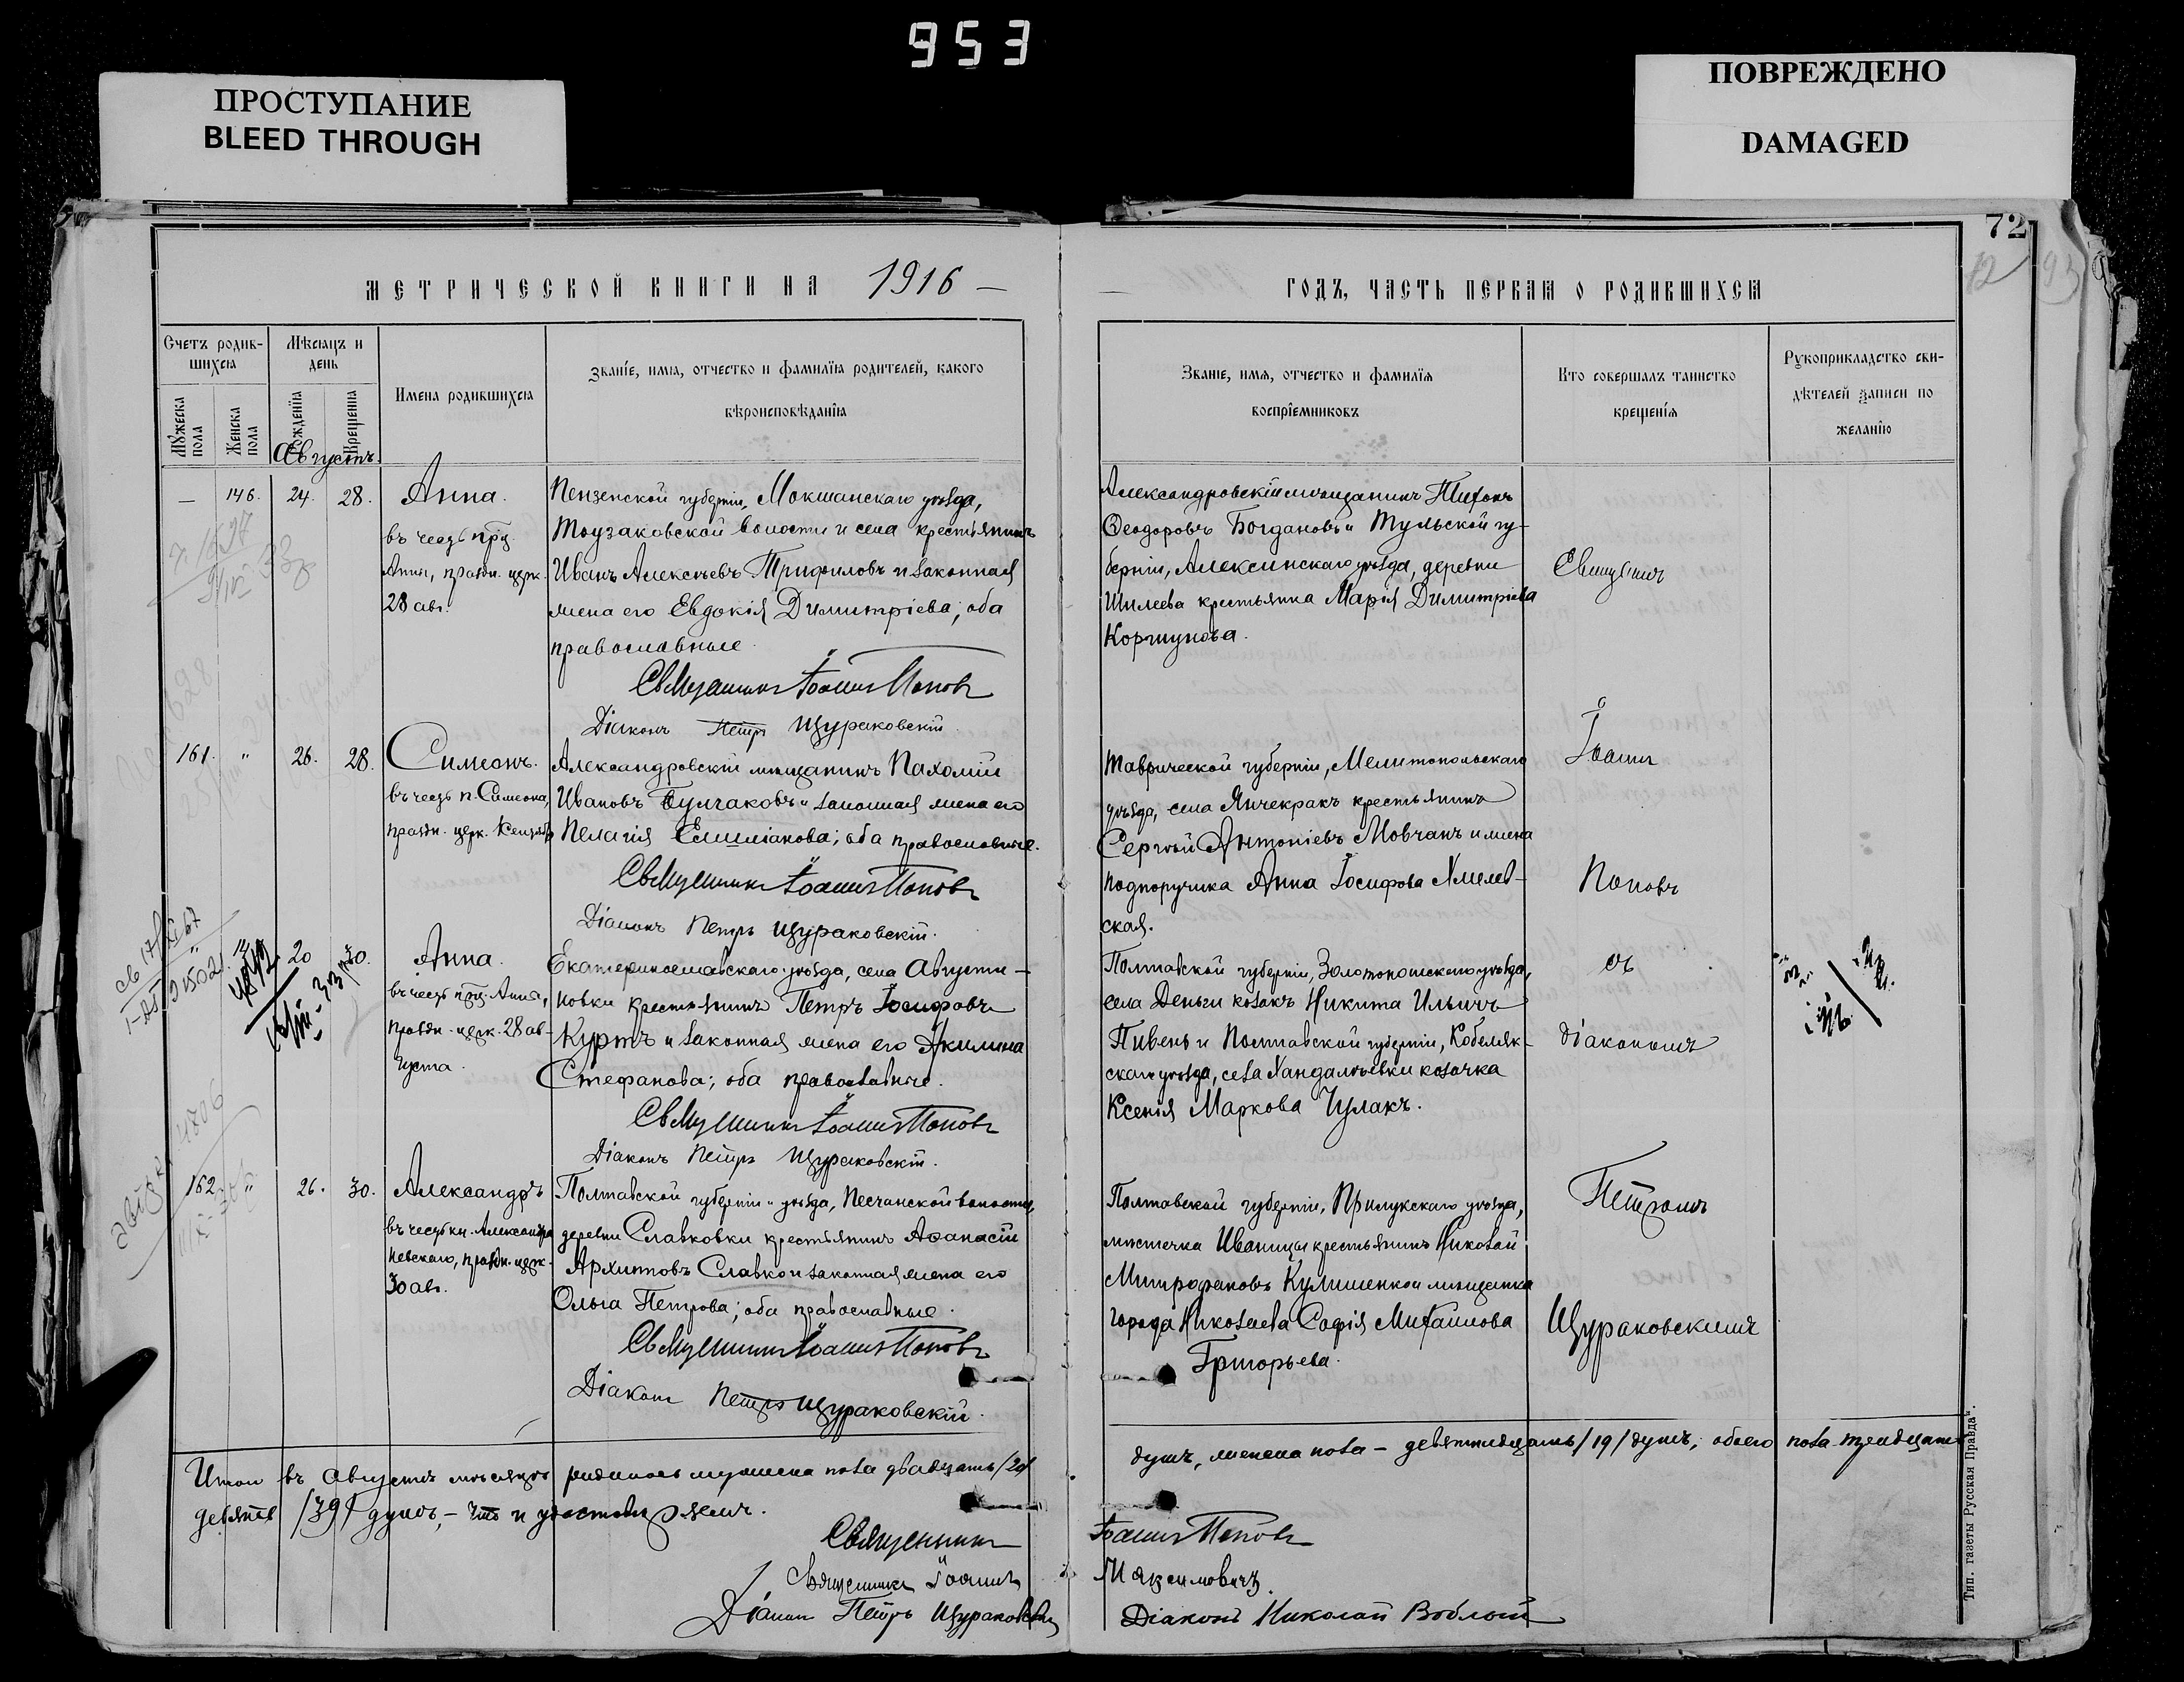 953
ПРОСТУПАНИЕ
BLEED THROUGH
ПОВРЕЖДЕНО
DAMAGED
72
МЕТРИЧЕСКОЙ КНИГИ НА 1916 —
Счетъ родив-
шихся
Мѣсяцъ и
день
Мужеска
пола
Женска
пола
Рожденія
Крещенія
Имена родившихся
Званіе, имя, отчество и фамилія родителей, какого
вѣроисповѣданія
Августъ.
— 146. 24. 28.
Анна.
въ честь прц
Анны, праздн. церк.
28 авг.
Пензенской губерніи, Мокшанскаго уѣзда,
волости и села крестьянинъ
Иванъ Алексѣевъ Трифиловъ и законная
жена его Евдокія Димитріева; оба
православные.
Священникъ Іоаннъ Поповъ
Діаконъ Петръ Щураковскій.
161. " 26. 28.
Симеонъ.
въ честь п. Симеона,
праздн. церк.
Александровскій мѣщанинъ Пахомій
Ивановъ Булгаковъ и законная жена его
Пелагія Емиліанова; оба православные.
Священникъ Іоаннъ Поповъ
Діаконъ Петръ Щураковскій.
20 30.
Анна.
въ честь прц. Анны,
праздн. церк. 28 ав-
густа.
Екатеринославскаго уѣзда, села Августи-
новки крестьянинъ Петръ Іосифовъ
Куртъ и законная жена его Акилина
Стефанова; оба православные.
Священникъ Іоаннъ Поповъ
Діаконъ Петръ Щураковскій.
162 " 26. 30.
Александръ
въ честь кн. Александра
Невскаго, праздн. церк.
30 авг.
Полтавской губерніи и уѣзда, Песчанской волости,
деревни Славковки крестьянинъ Аѳанасій
Архиповъ Славко и законная жена его
Ольга Петрова; оба православные.
Священникъ Іоаннъ Поповъ
Діаконъ Петръ Щураковскій.
Итого въ августѣ мѣсяцѣ родилось мужеска пола двадцать /20/
девять /39/ душъ, — что и удостовѣряемъ.
Священникъ
Священникъ Іоаннъ
Діаконъ Петръ Щураковскій
ГОДЪ, ЧАСТЬ ПЕРВАЯ О РОДИВШИХСЯ
Званіе, имя, отчество и фамилія
воспріемниковъ
Кто совершалъ таинство
крещенія
Рукоприкладство сви-
дѣтелей записи по
желанію
Александровскій мѣщанинъ Тихонъ
Ѳеодоровъ Богдановъ и Тульской гу-
берніи, Алексинскаго уѣзда, деревни
Шилеева крестьянка Марія Димитріева
Коршунова.
Священникъ
Таврической губерніи, Мелитопольскаго
уѣзда, села Янчекракъ крестьянинъ
Сергѣй Антоніевъ Мовчанъ и жена
подпоручика Анна Іосифова Хмелев-
ская.
Іоаннъ
Поповъ
Полтавской губерніи, Золотоношскаго уѣзда,
села Деньги козакъ Никита Ильичъ
Пивень и Полтавской губерніи, Кобеляк-
скаго уѣзда, села Хандалѣевки козачка
Ксенія Маркова Чулакъ.
съ
діакономъ
Полтавской губерніи, Прилукскаго уѣзда,
мѣстечка Иваницы крестьянинъ Николай
Митрофановъ Кулишенко и мѣщанка
города Николаева Софія Михаилова
Григорьева.
Петромъ
Щураковскимъ
душъ, женска пола — девятнадцать /19/ душъ, обоего пола тридцать
Іоаннъ Поповъ
Максимовичъ.
Діаконъ Николай Воблый
Тип. газеты Русская Правда".